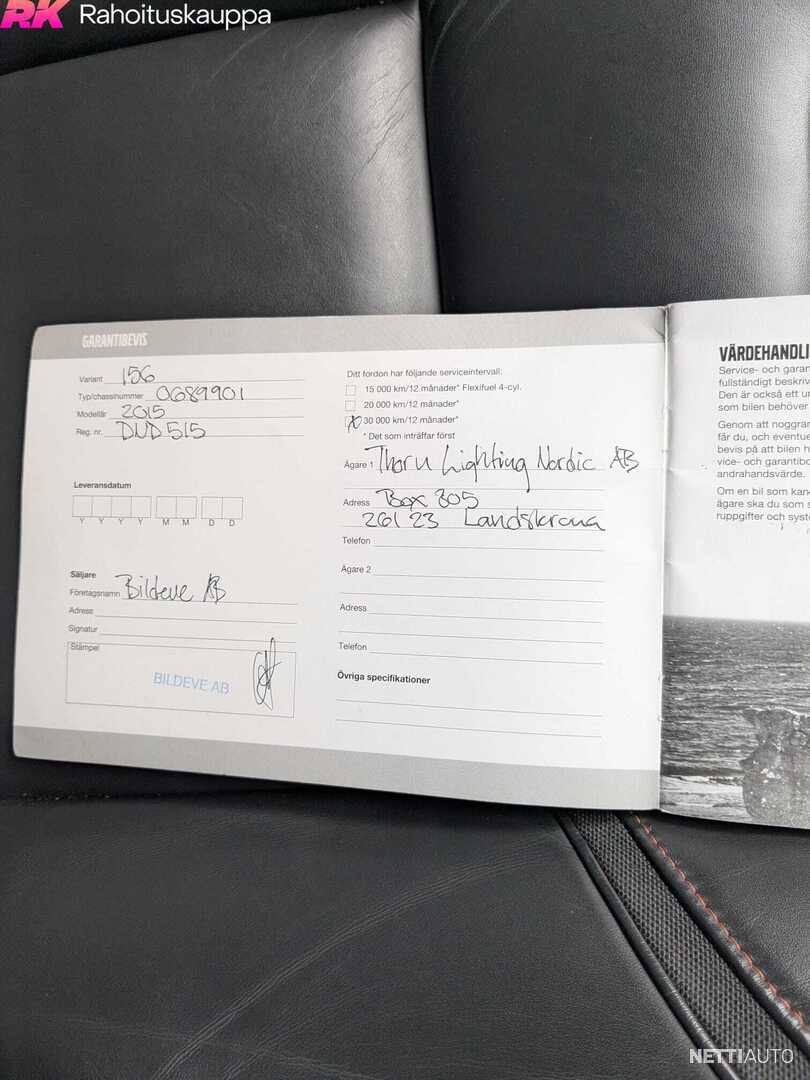 RK Rahoituskauppa
GARANTIBEVIS
Variant 156
Typ/chassinummer 0689901
Modellår 2015
Reg. nr. DUD 515
Leveransdatum
Y Y Y Y M M D D
Säljare
Företagsnamn Bildeve AB
Adress
Signatur
Stämpel
BILDEVE AB
Ditt fordon har följande serviceintervall:
15 000 km/12 månader* Flexifuel 4-cyl.
20 000 km/12 månader*
X 30 000 km/12 månader*
* Det som inträffar först
Ägare 1 Thorn Lighting Nordic AB
Adress Box 305
261 23 Landskrona
Telefon
Ägare 2
Adress
Telefon
Övriga specifikationer
VÄRDEHANDLI
Service- och garan
fullständigt beskriv
Den är också ett un
som bilen behöver
Genom att noggran
får du, och eventue
bevis på att bilen h
vice- och garantibo
andrahandsvärde.
Om en bil som kan
ägare ska du som s
ruppgifter och syste
NETTIAUTO